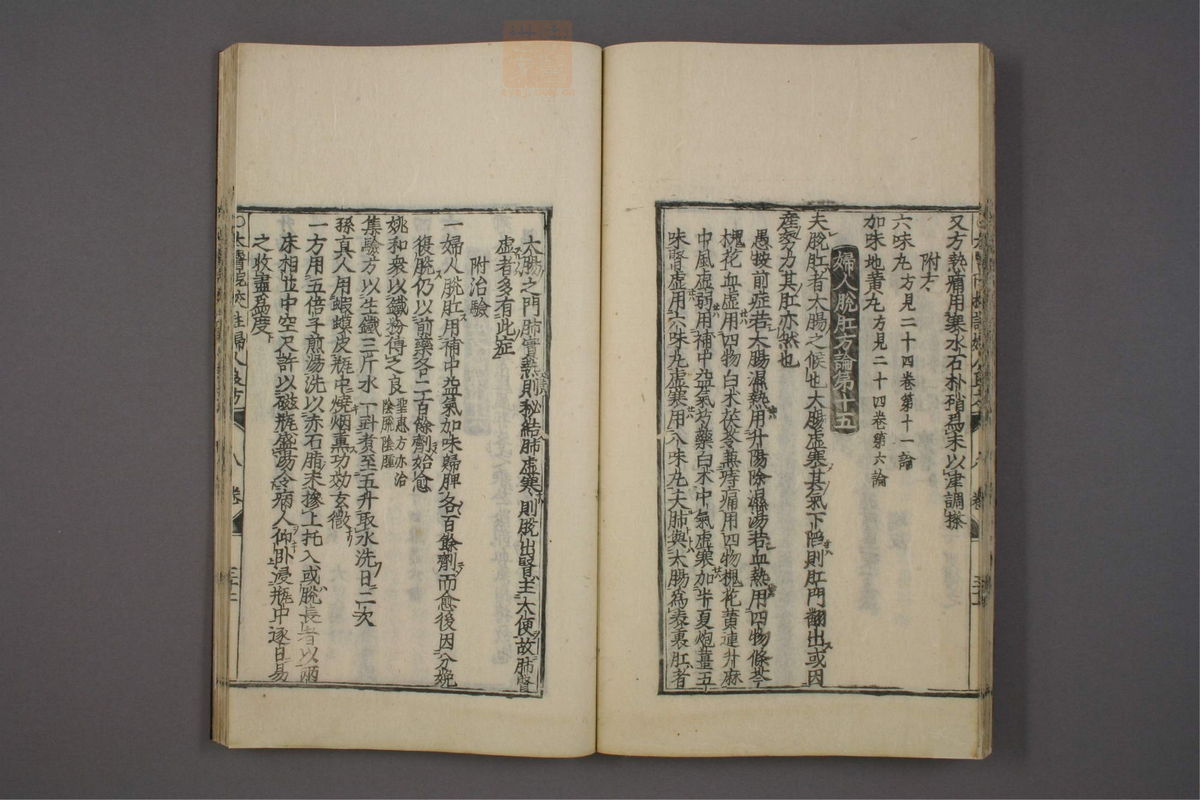 又方熱痛用寒水石朴硝爲末以津調搽
附方
六味丸方見二十四卷第十一論
加味地黄丸方見二十四卷第六論
婦人脫肛方論第十五
夫脫肛者大腸之候也大腸虛寒其氣下陷則肛門翻出或因
産努力其肛亦然也
愚按前症若大腸濕熱用升陽除濕湯若血熱用四物條芩
槐花血虛用四物白术茯苓兼痔痛用四物槐花黄連升麻
中風虛弱用補中益氣芍藥白术中氣虛寒加半夏炮薑五
味腎虛用六味丸虛寒用八味丸夫肺與大腸爲表裏肛者
卷
大腸之門肺實熱則秘結肺虛寒則脫出腎主大便故肺腎
虛者多有此症
附治驗
一婦人脫肛用補中益氣加味歸脾各百餘劑而愈後因分娩
復脫仍以前藥各二百餘劑始愈
姚和衆以鐵粉傅之良
聖惠方亦治
陰脫陰腫
集驗方以生鐵三斤水一斗煮至五升取水洗日二次
孫真人用蝦蟆皮瓶中燒烟熏功效玄微
一方用五倍子煎湯洗以赤石脂末摻上托入或脫長者以兩
床相並中空尺許以磁瓶盛湯令病人仰卧浸瓶中逐日易
之收盡爲度
八 卷